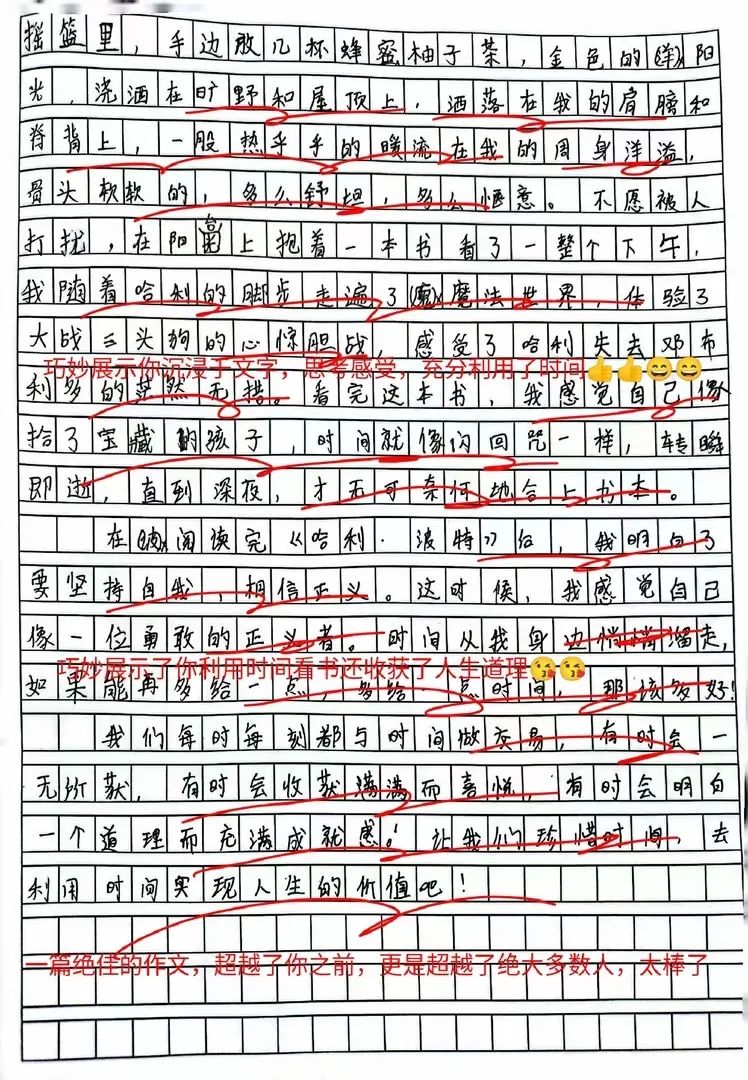 摇篮里，手边放几杯蜂蜜柚子茶，金色的阳
光，浇洒在旷野和屋顶上，洒落在我的肩膀和
脊背上，一股热乎乎的暖流在我的周身洋溢，
骨头软软的，多么舒坦，多么惬意。不愿被人
打扰，在阳台上抱着一本书看了一整个下午，
我随着哈利的脚步走遍了魔法世界，体验了
大战三头狗的心惊胆战，感受了哈利失去邓布
巧妙展示你沉浸于文字，思考感受，充分利用了时间👍👍😄😄
利多的茫然无措。看完这本书，我感觉自己像
拾了宝藏的孩子，时间就像闪回咒一样，转瞬
即逝，直到深夜，才无可奈何地合上书本。
在阅读完《哈利·波特》后，我明白了
要坚持自我，相信正义。这时候，我感觉自己
像一位勇敢的正义者。时间从我身边悄悄溜走，
巧妙展示了你利用时间看书还收获了人生道理😘😘
如果能再多给一点，多给一点时间，那该多好！
我们每时每刻都与时间做交易，有时会一
无所获，有时会收获满满而喜悦，有时会明白
一个道理而充满成就感！让我们珍惜时间，去
利用时间实现人生的价值吧！
一篇绝佳的作文，超越了你之前，更是超越了绝大多数人，太棒了